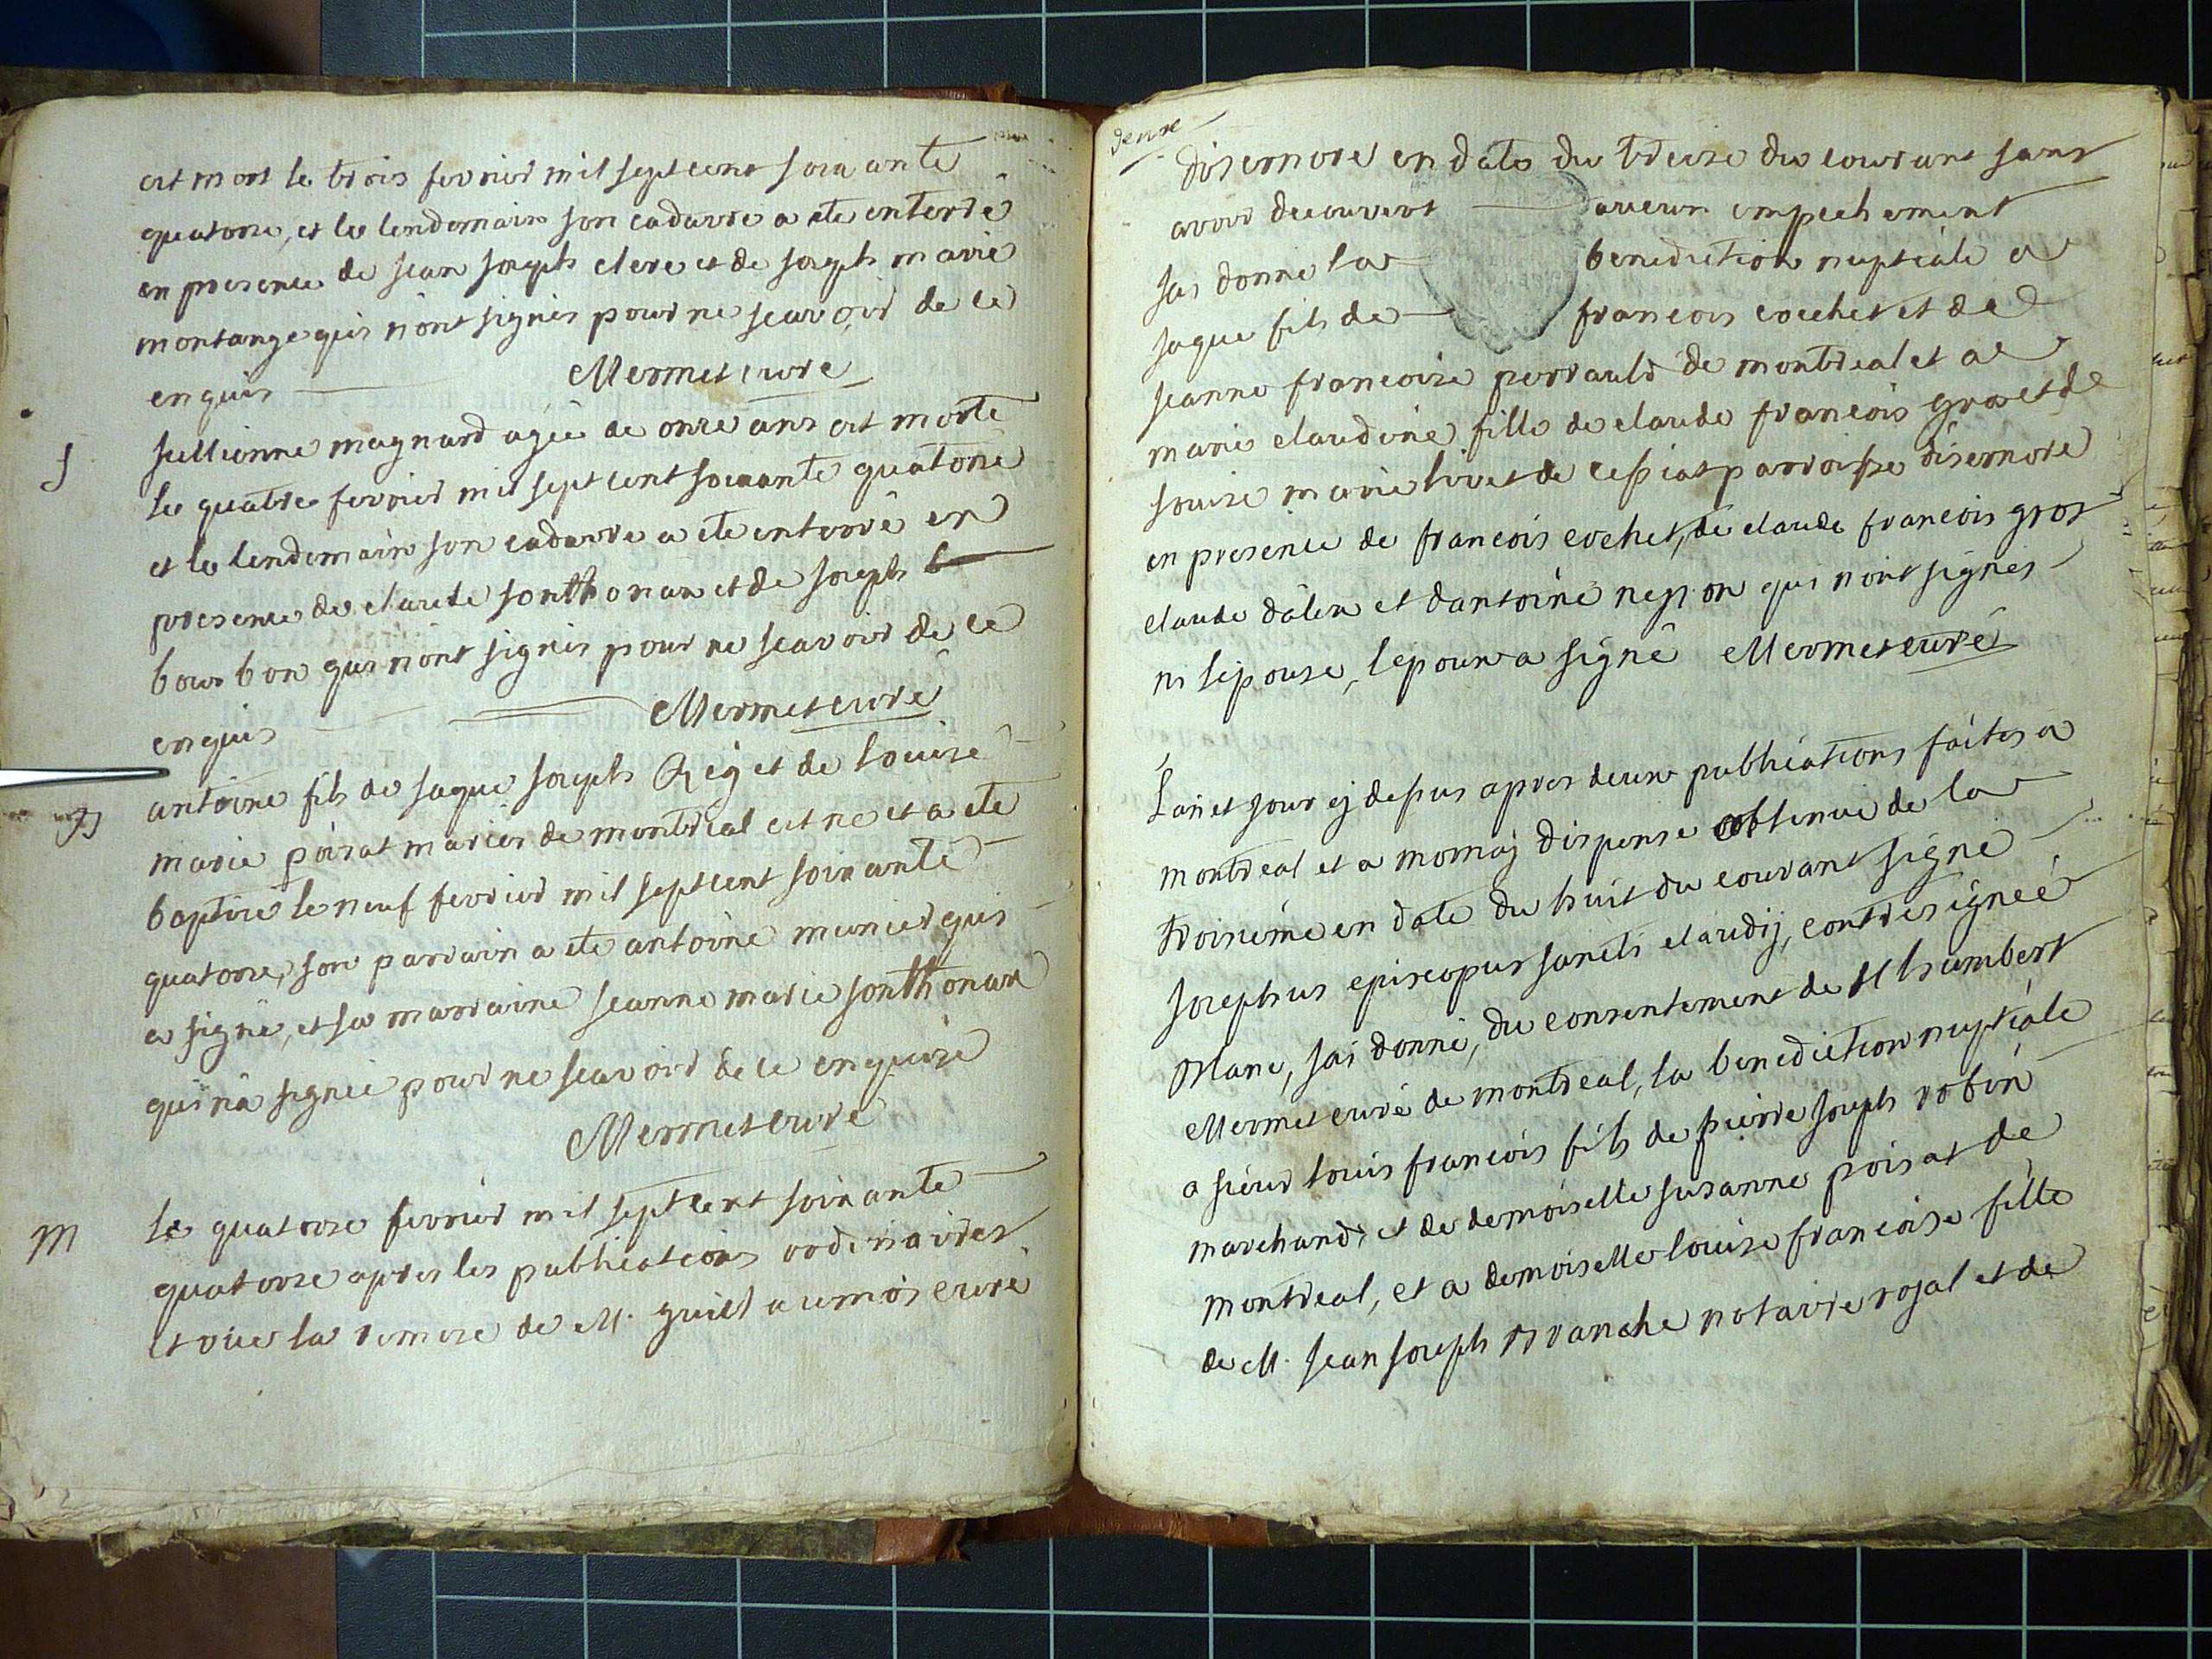 est mort le trois fevrier mil sept cent soixante
quatorze, et le lendemain son cadavre a ete enterré
en presence de jean joseph clerc et de joseph marie
montange qui n'ont signés pour ne scavoir de ce
enquis Mermet curé
S jullienne magnard agée de onze ans est morte
le quatre fevrier mil sept cent soixante quatorze
et le lendemain son cadavre a ete enterré en
presence de claude sonthonax et de joseph
bourbon qui n'ont signés pour ne scavoir de ce
enquis Mermet curé
antoine fils de jaque joseph Reÿ et de louise
B marie poisat mariés de montreal est ne et a ete
baptisé le neuf fevrier mil sept cent soixante
quatorze, son parrain a ete antoine munier qui
a signé, et sa marraine jeanne marie sonthonax
qui n'a signée pour ne scavoir de ce enquise
Mermet curé
M le quatorze fevrier mil sept cent soixante
quatorze apres les publications ordinaires
et vue la remise de M. guill aumos curé
deuxe
disernore en date du treize du courant sans
avoir decouvert aucun empechement
jai donne la benediction nuptiale a
jaque fils de francois cochet et de
jeanne francoise perrauld de montreal et a
marie claudine fille de claude francois gros et de
louise marie livet de cessiat parroisse disernore
en presence de francois cochet, de claude francois gros
claude dalin et dantoine neyron qui n'ont signés
ni lepouse, lepoux a signé Mermet curé
L'an et jour cy dessus apres deux publications faites a
montreal et a mornaÿ dispense obtenue de la
troisième en date du huit du courant signé
josephus episcopus sancti claudij, contresignée
Mane, jai donné, du consentement de M humbert
Mermet curé de montreal, la benediction nuptiale
a sieur louis francois fils de pierre joseph robin
marchand, et de demoiselle susanne poisat de
montreal, et a demoiselle louise francoise fille
de M. jean joseph vranche notaire royal et de